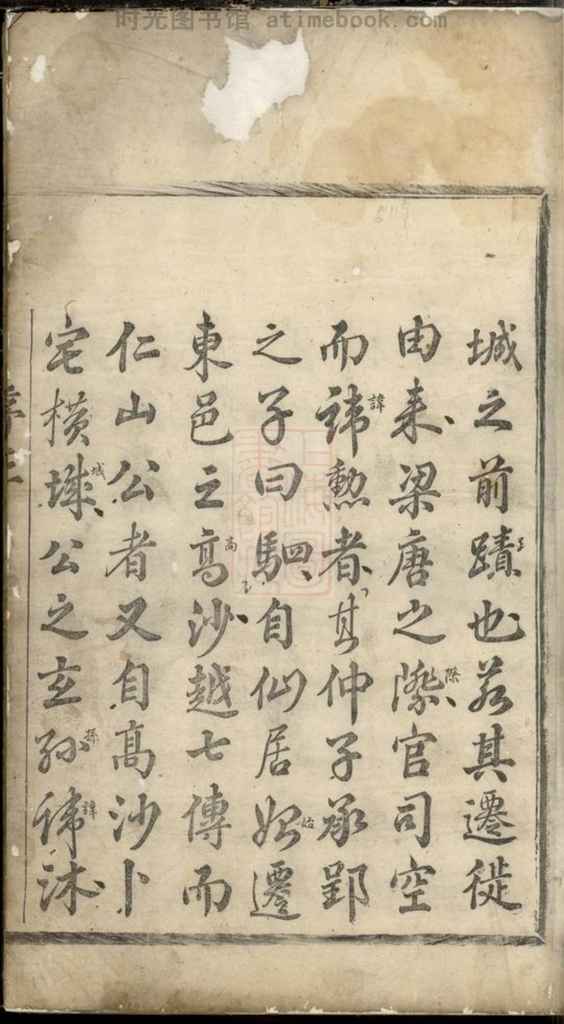 时光图书馆 atimebook.com
城之前蹟也若其遷徙
由来梁唐之際官司空
而諱勲者其仲子承郢
之子曰駟自仙居始遷
東邑之高沙越七傳而
仁山公者又自高沙卜
宅橫城公之玄孫諱沐